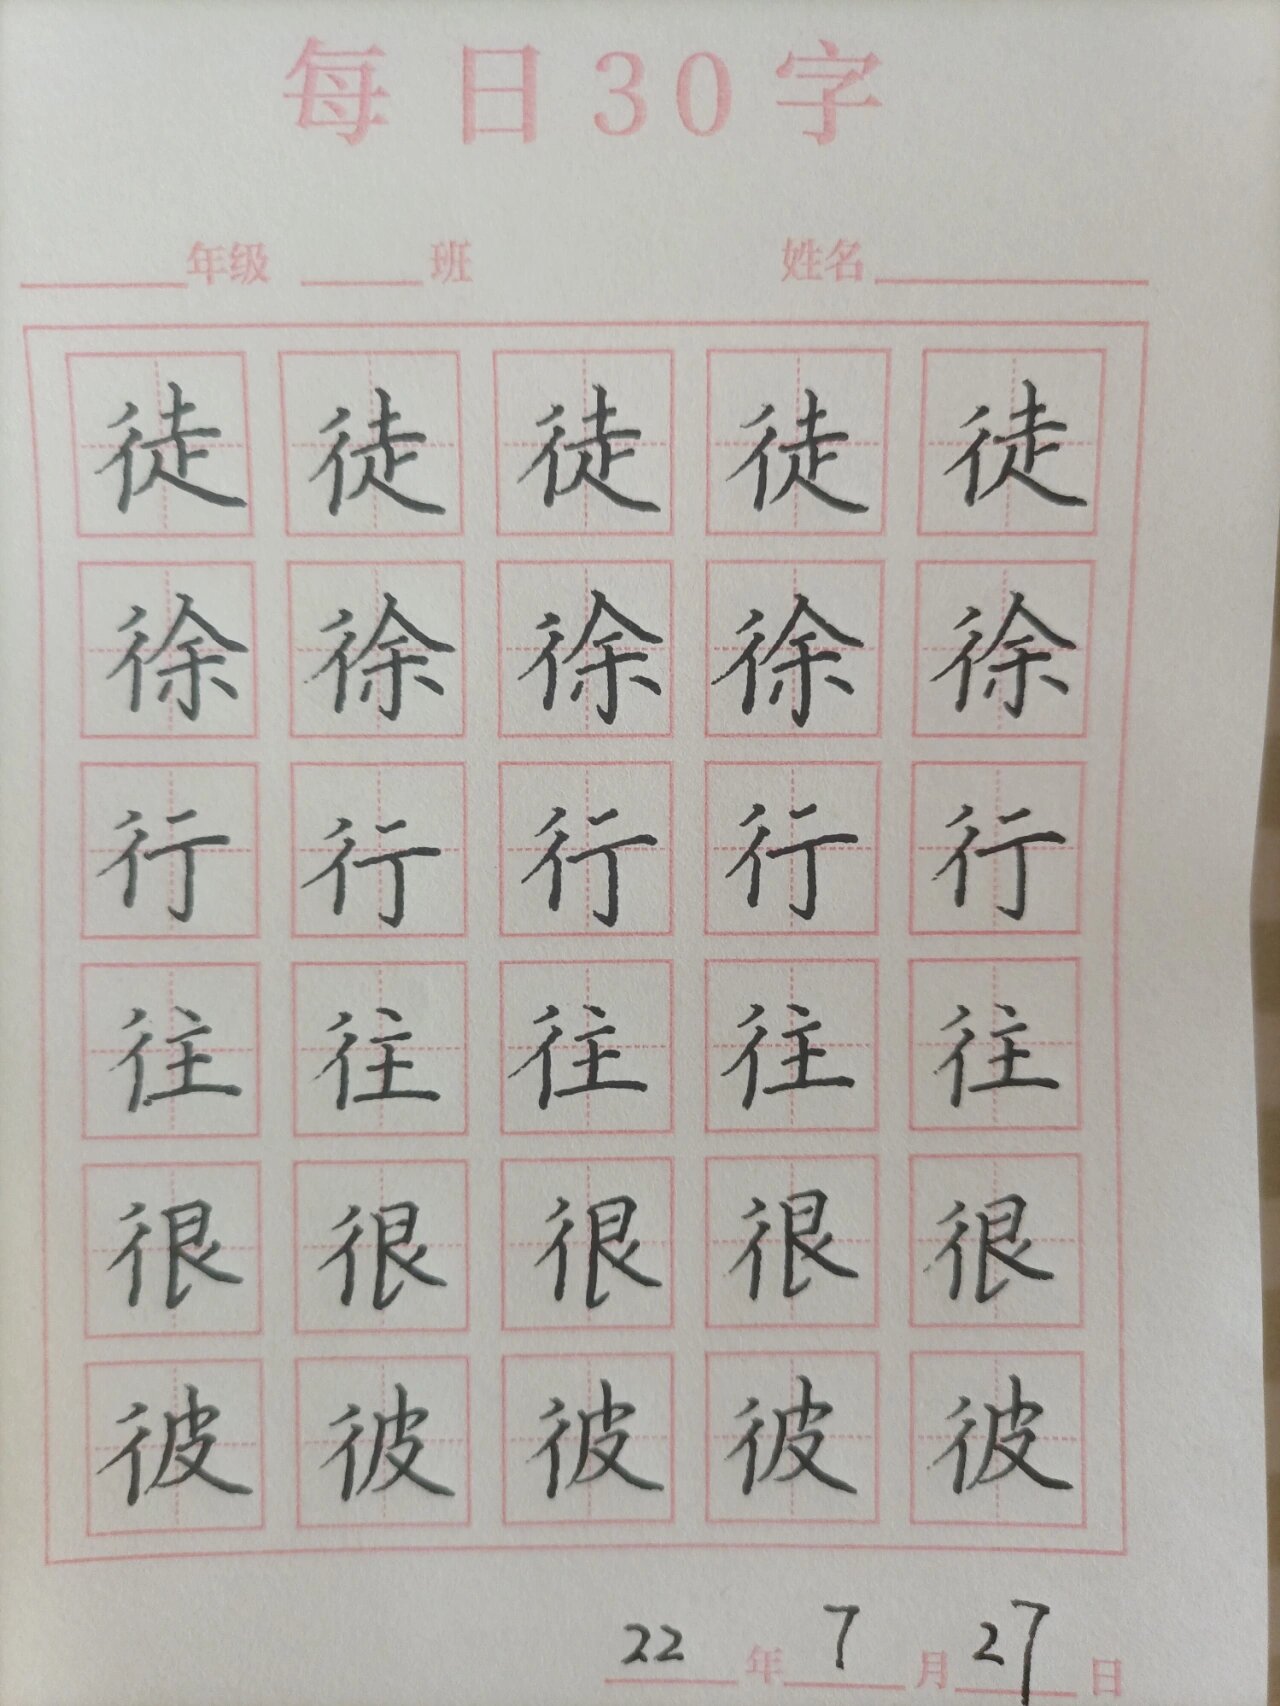 每日30字
年级 班 姓名
徒 徒 徒 徒 徒
徐 徐 徐 徐 徐
行 行 行 行 行
往 往 往 往 往
很 很 很 很 很
彼 彼 彼 彼 彼
22年7月27日